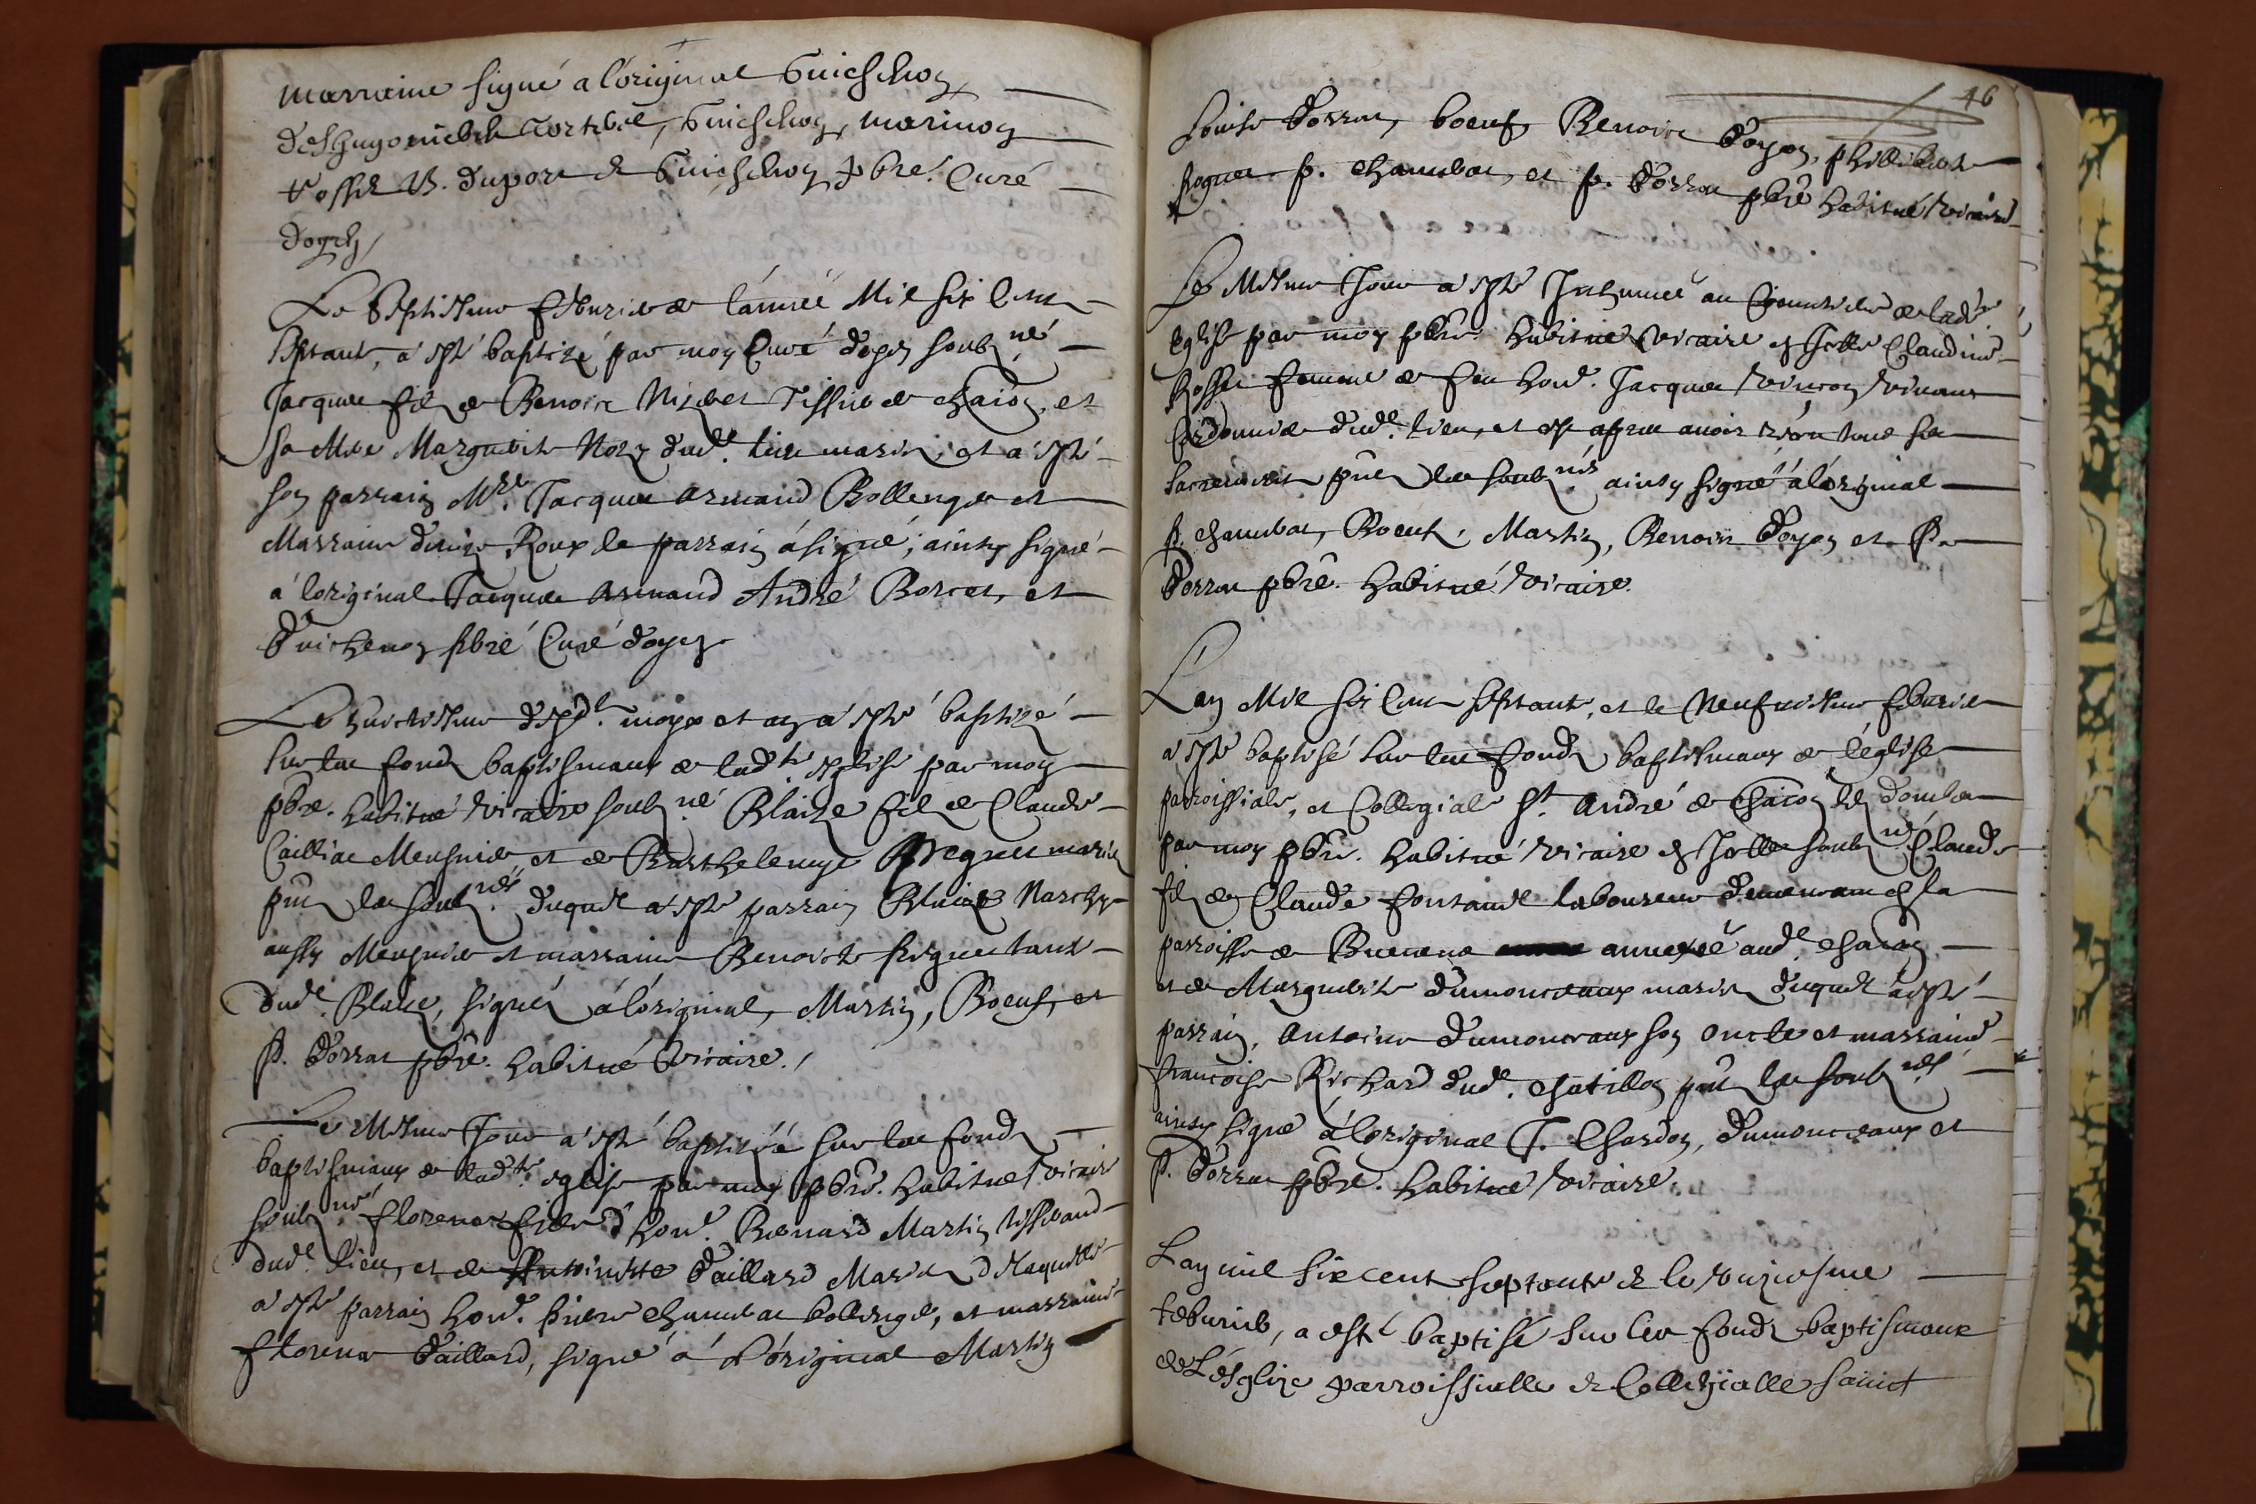 marraine signé a l'original Guichenon
Tortebel, Guichenon, marinon
B. duport & Guichenon pbre. Curé
doyen
Le septiesme febvrier de l'année Mil six Cent
septante, a esté baptizé par moy Curé doyen soubzné
Jacques filz de Benoict Nizier Tissier de chaon, et
sa Mere Marguerite dud. lieu mariez, et a esté
son parrain Mre. Jacques Armand Bollenger et
Marraine Roux le parrain a signé, ainsy signé
á l'original Jacques Armand André Borcet, et
Guichenon pbre Curé doyen
Le huictiesme desd. moys et an a esté baptizé
sur les fondz baptismaux de ladte. esglise par moy
pbre. habitué vicaire soubzné Blaize filz de Claude
Cailliat Meusnier et de Barthelemye mariez
pnt les soubznés duquel a esté parrain Blaize
aussy Meusnier et marraine Benoicte
dud. Blaize, signéz á l'original, Martin, Boeuf, et
P. Dorzat pbre. habitué vicaire./
Le Mesme Jour a esté baptizéé sur les fondz
baptismaux de ladte. esglise par moy pbre. habitué vicaire
soubzné florence fille d'hon. Benard Martin tisserand
dud. lieu, et de Anthoinette Gaillard Mariez De laquelle
a esté parrain hon. Pierre Chambat bollenger, et marraine
florence Gaillard, signé á l'original Martin
46
Louise Dorzat, boeuf, Benoict Doyen, philibert
P. Chambat, et P. Dorzat pbre habitué vicaire
Le Mesme Jour a esté Inhumeé au Cimetiere de ladte
Eglise par moy pbre. habitué vicaire en Icelle Claudine
femme de feu hon. Jacques vincon vivant
Cordonnier dud. lieu, et ce apres avoir receu tous ses
sacrements pnt les soubznés ainsy signé á l'original
P. chambat, Boeuf, Martin, Benoict Doyen et P.
Dorzat pbre. habitué vicaire.
L'an Mil six Cent septante, et le Neufviesme febvrier
a esté baptisé sur les fondz baptismaux de l'église
parroissiale, et Collegiale St. André de Chaon les dombes
par moy pbre. habitué vicaire en Icelle soubzné Claude
filz de Claude fontanel laboureur demeurant en la
parroisse de Buenenc annexéé aud. chaon
et de Marguerite Dumonceaux mariez duquel a esté
parrain, Antoine Dumonceaux son oncle et marraine
francoise Richard dud. chatillon pnt les soubznés
ainsy signé á l'original J. Chardon, Dumonceaux et
P. Dorzat pbre. habitué vicaire.
L'an mil six cent septante & le onziesme
febvrier, a esté baptisé sur les fondz baptismaux
de L'ésglize parroissialle & Collegialle sainct